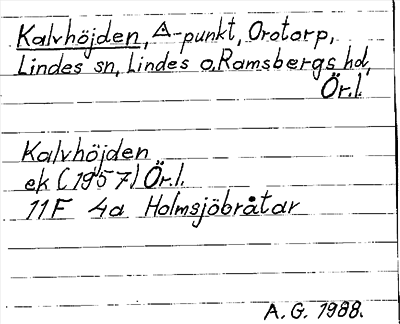 Kalvhöjden, △-punkt, Orotorp,
Lindes sn, Lindes o. Ramsbergs hd,
Ör.l.
Kalvhöjden
ek (1957) Ör.l.
11F 4a Holmsjöbråtar
A.G. 1988.